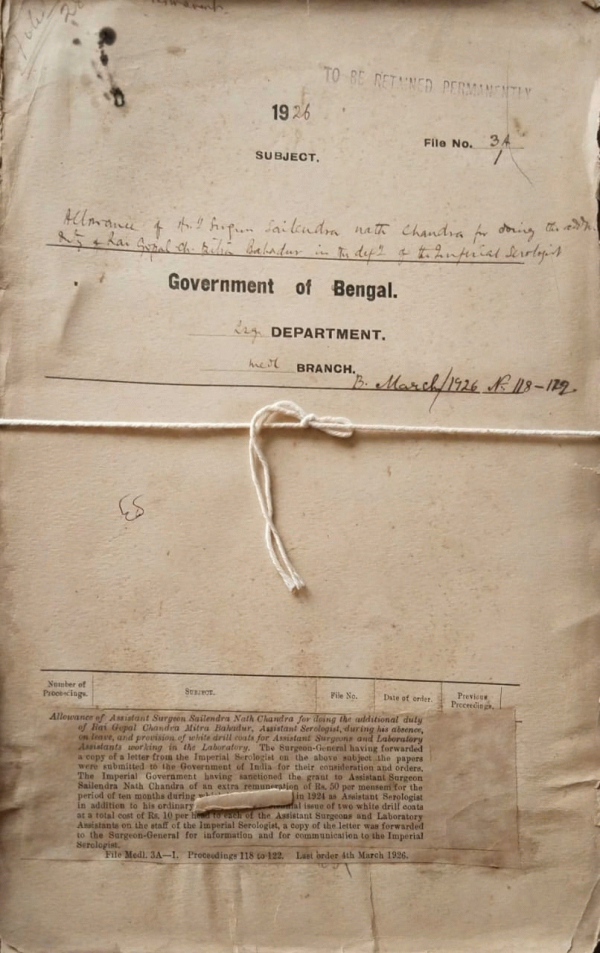 TO BE RETAINED PERMANENTLY
1926
File No. 3A/1
SUBJECT.
Allowance of As. Surgeon Sailendra nath Chandra for doing the addl.
duty of Rai Gopal Ch. Mitra Bahadur in the dept. of the Imperial Serologist
Government of Bengal.
DEPARTMENT.
Medl BRANCH.
B. March/1926 No. 118-122.
Number of Proceedings.
Subject.
File No.
Date of order.
Previous Proceedings.
Allowance of Assistant Surgeon Sailendra Nath Chandra for doing the additional duty
of Rai Gopal Chandra Mitra Bahadur, Assistant Serologist, during his absence,
on leave, and provision of white drill coats for Assistant Surgeons and Laboratory
Assistants working in the Laboratory. The Surgeon-General having forwarded
a copy of a letter from the Imperial Serologist on the above subject the papers
were submitted to the Government of India for their consideration and orders.
The Imperial Government having sanctioned the grant to Assistant Surgeon
Sailendra Nath Chandra of an extra remuneration of Rs. 50 per mensem for the
period of ten months during in 1924 as Assistant Serologist
in addition to his ordinary issue of two white drill coats
at a total cost of Rs. 10 per head to each of the Assistant Surgeons and Laboratory
Assistants on the staff of the Imperial Serologist, a copy of the letter was forwarded
to the Surgeon-General for information and for communication to the Imperial
Serologist.
File Medl. 3A—1. Proceedings 118 to 122. Last order 4th March 1926.